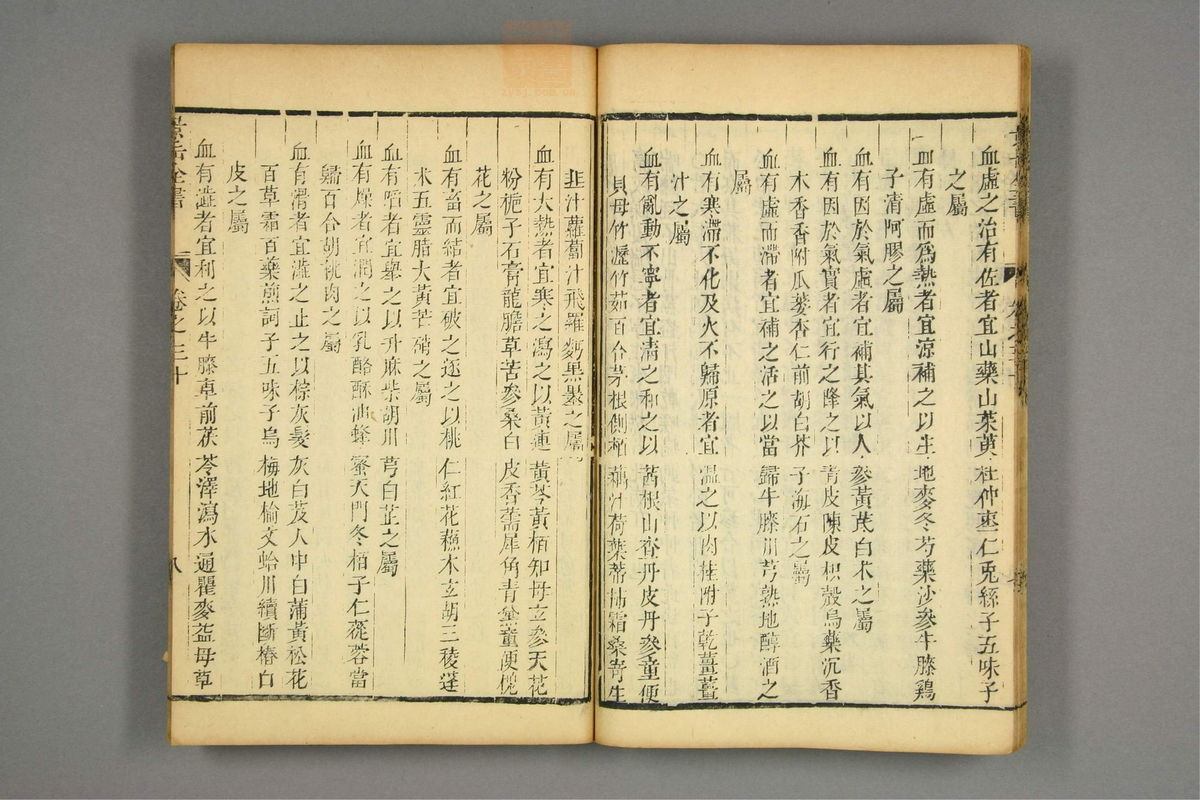 血虛之治有佐者宜山藥山茱萸杜仲棗仁兎絲子五味子
之屬
血有虛而爲熱者宜凉補之以生地麥冬芍藥沙參牛膝鷄
子清阿膠之屬
血有因於氣虛者宜補其氣以人參黃茋白术之屬
血有因於氣實者宜行之降之以靑皮陳皮枳殼烏藥沉香
木香香附瓜蔞杏仁前胡白芥子海石之屬
血有虛而滯者宜補之活之以當歸牛膝川芎熟地醇酒之
屬
血有寒滯不化及火不歸原者宜溫之以肉桂附子乾薑薑
汁之屬
血有亂動不寧者宜淸之和之以茜根山查丹皮丹參童便
貝母竹瀝竹茹百合茅根側栢藕汁荷葉蒂柿霜桑寄生
韭汁蘿蔔汁飛羅麪黑墨之屬
血有大熱者宜寒之瀉之以黃連黃芩黃栢知母玄參天花
粉梔子石膏龍膽草苦參桑白皮香薷犀角青黛童便槐
花之屬
血有蓄而結者宜破之逐之以桃仁紅花蘇木玄胡三稜蓬
术五靈脂大黃芒硝之屬
血有陷者宜舉之以升麻柴胡川芎白芷之屬
血有燥者宜潤之以乳酪酥油蜂蜜天門冬栢子仁蓯蓉當
歸百合胡桃肉之屬
血有滑者宜澁之止之以棕灰髮灰白芨人中白蒲黃松花
百草霜百藥煎訶子五味子烏梅地楡文蛤川續斷椿白
皮之屬
血有澁者宜利之以牛膝車前茯苓澤瀉木通瞿麥益母草
景岳全書
卷之三十
八